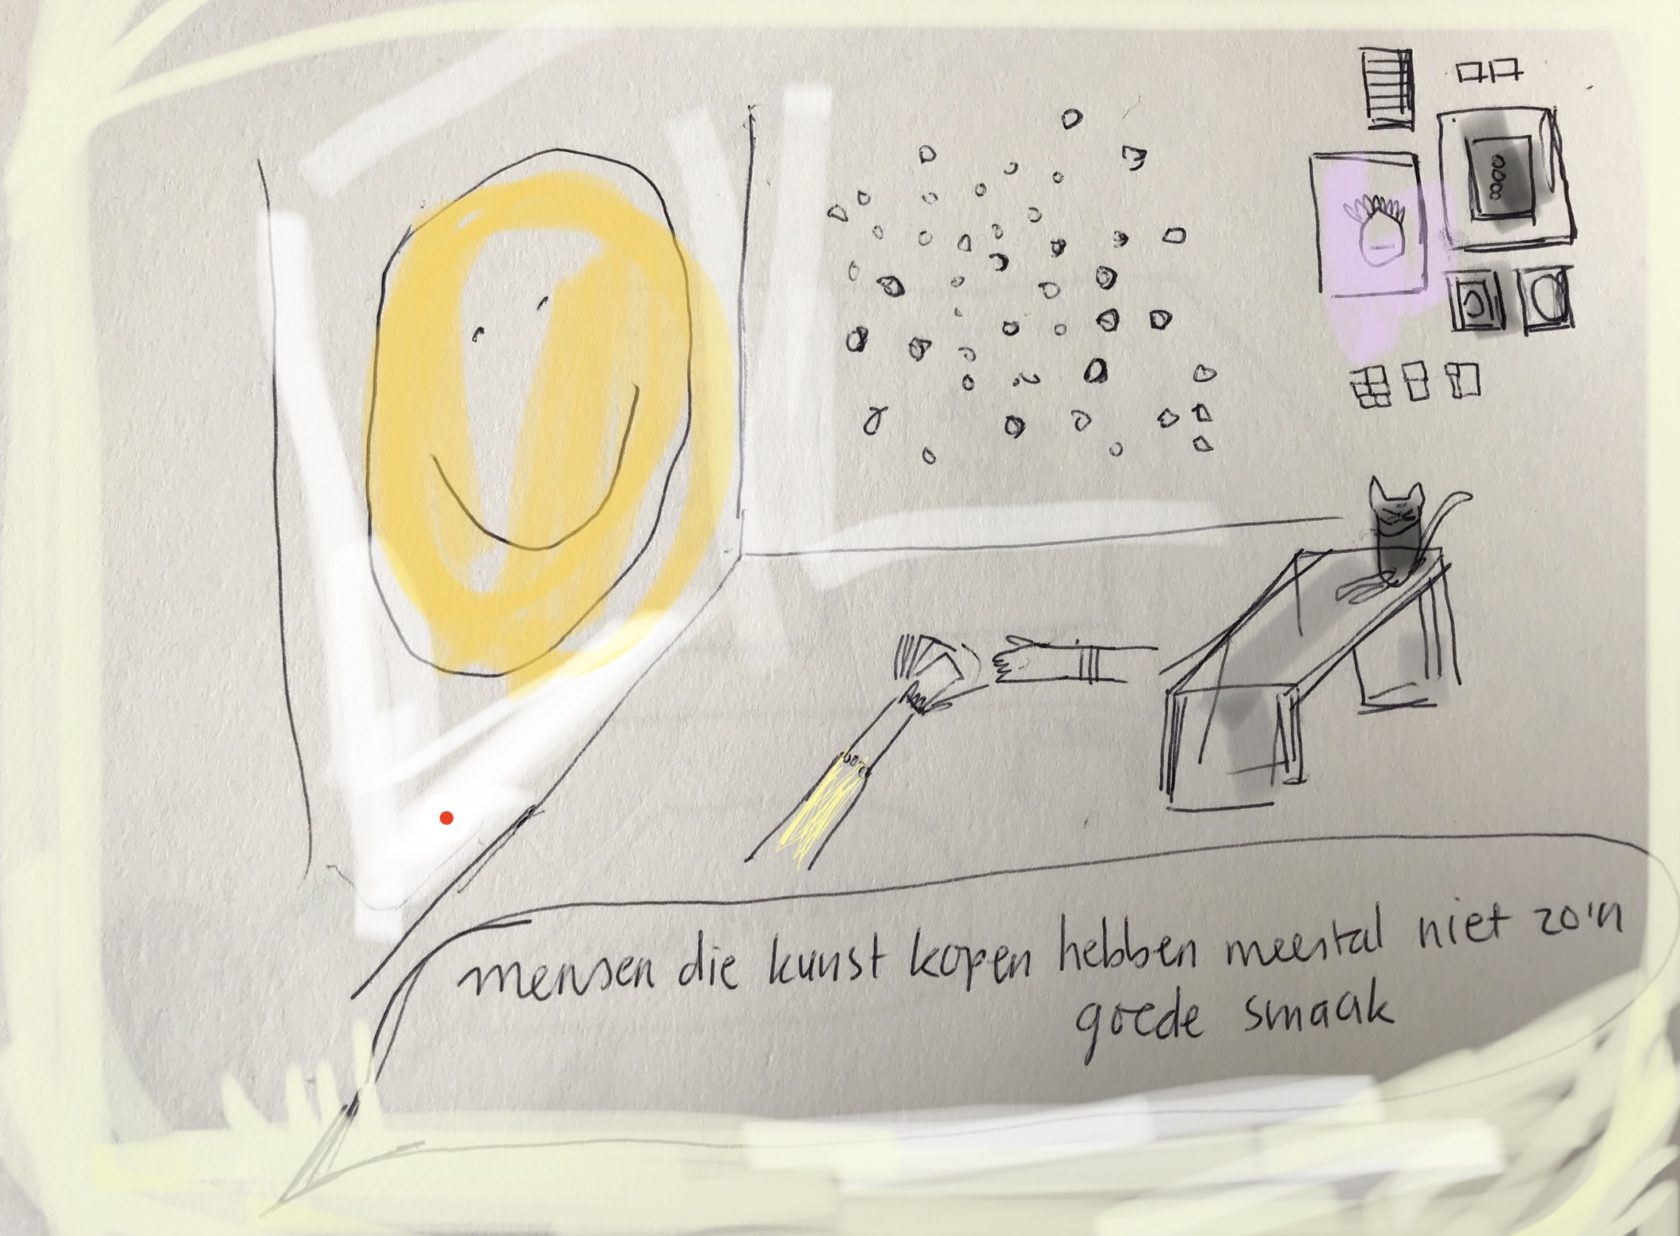 mensen die kunst kopen hebben meestal niet zo'n
goede smaak